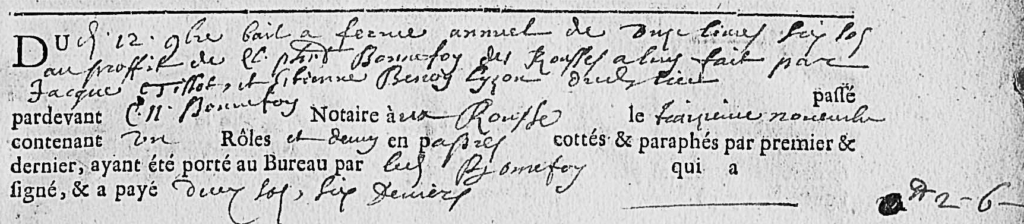 DUd. 12. 9bre bail a ferme annuel de onze livres six sols
au proffit de Cl. Bonnefoy des Rousses a luy fait par
Jacque Tissot, et Etienne Benoy Lizon dudit lieu
passé
pardevant C. N. Bonnefoy Notaire à aux Rousse le troisieme novembre
contenant un Rôles et demy en pages cottés & paraphés par premier &
dernier, ayant été porté au Bureau par led. Bonnefoy qui a
signé, & a payé deux sols, six deniers
2-6-